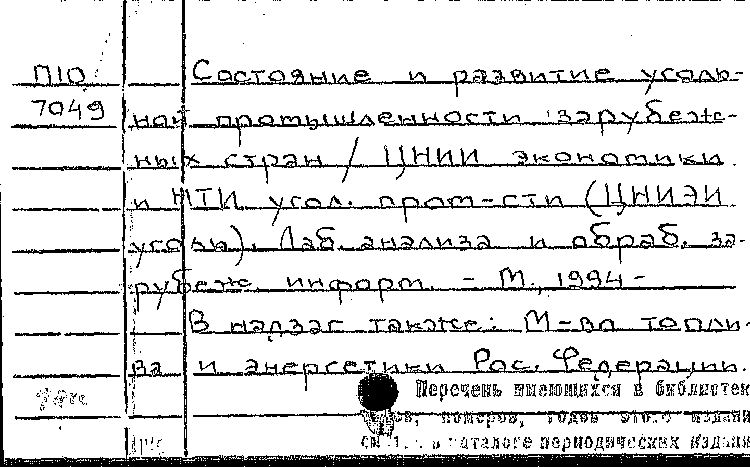 П10 Состояние и развитие уголь-
7049 ной промышленности зарубеж-
ных стран / ЦНИИ экономики
и НТИ угол. пром-сти (ЦНИЭИ
уголь). Лаб. анализа и обраб. за-
рубеж. информ. - М., 1994 -
В надзаг также: М-во топли-
ва и энергетики Рос. Федерации.
Перечень имеющихся в библиотек
номеров, годов этого издани
каталоге периодических издани